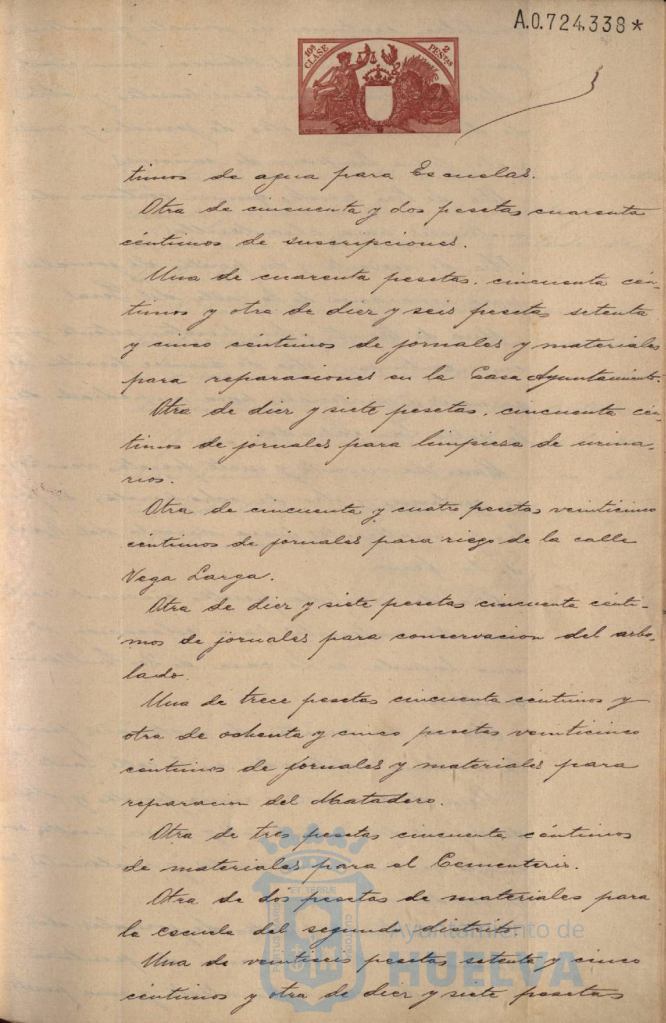 A.0.724,338*
10ª CLASE
2 PESETAS
timos de agua para Escuelas.
Otra de cincuenta y dos pesetas cuarenta
céntimos de suscripciones.
Una de cuarenta pesetas, cincuenta cén-
timos y otra de diez y seis pesetas setenta
y cinco céntimos de jornales y materiales
para reparaciones en la Casa Ayuntamiento.
Otra de diez y siete pesetas, cincuenta cén-
timos de jornales para limpiesa de urina-
rios.
Otra de cincuenta y cuatro pesetas veinticinco
céntimos de jornales para riego de la calle
Vega Larga.
Otra de diez y siete pesetas cincuenta cénti-
mos de jornales para conservacion del arbo-
lado.
Una de trece pesetas cincuenta céntimos y
otra de ochenta y cinco pesetas veinticinco
céntimos de jornales y materiales para
reparacion del Matadero.
Otra de tres pesetas cincuenta céntimos
de materiales para el Cementerio.
Otra de dos pesetas de materiales para
la escuela del segundo distrito.
Una de veintiseis pesetas setenta y cinco
céntimos y otra de diez y siete pesetas
Ayuntamiento de
HUELVA